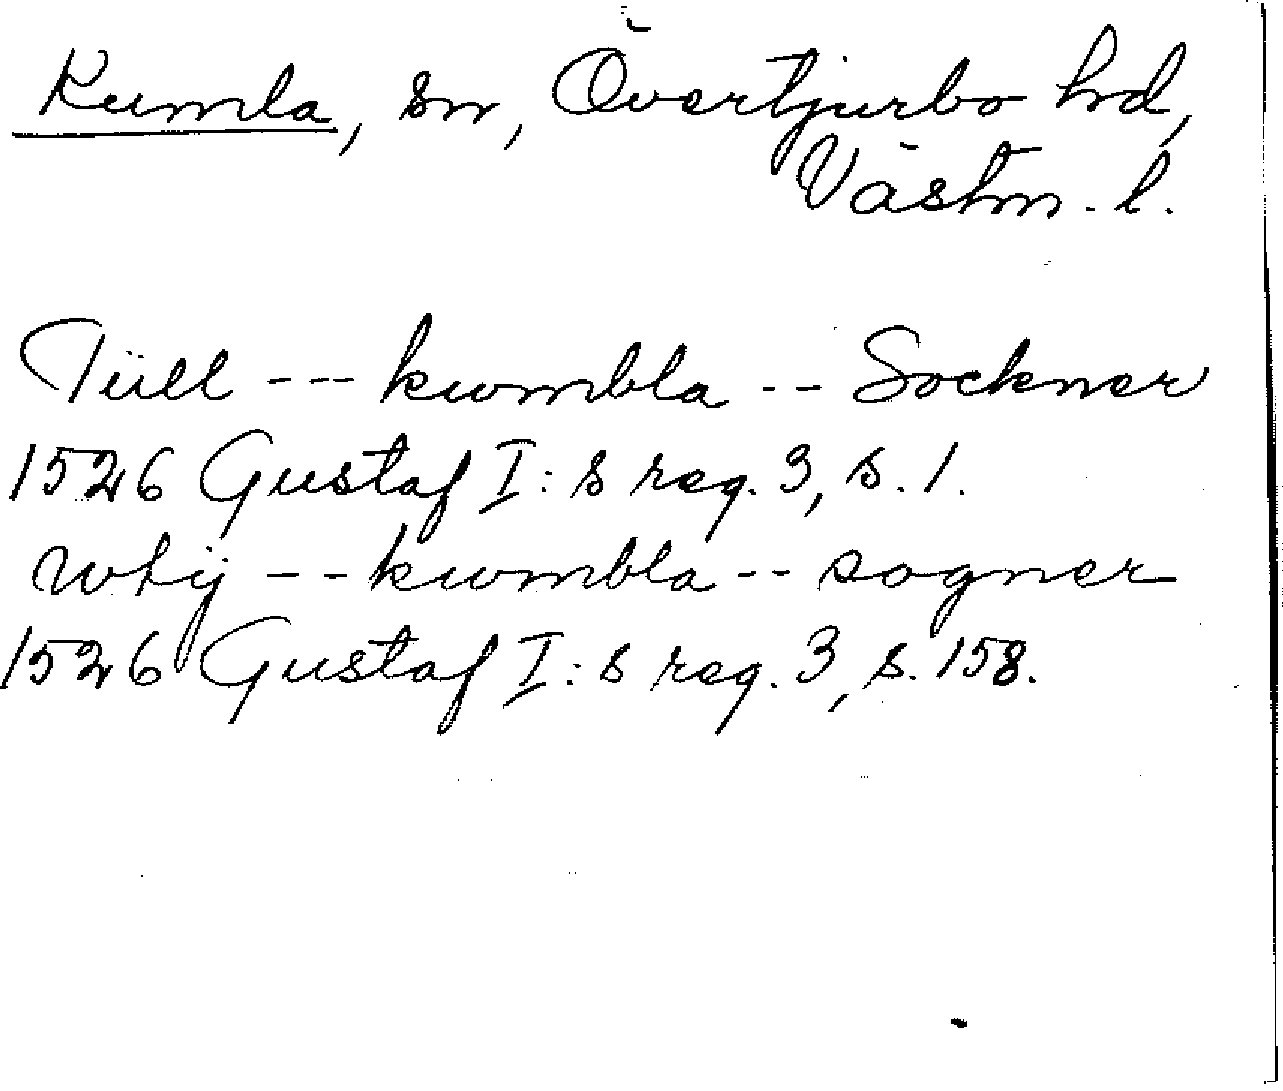 Kumla, sn, Övertjurbo hd,
Västm. l.
Tiill --- kwmbla -- Sockner
1526 Gustaf I:s reg. 3, s. 1.
Wtij -- kwmbla -- sogner
1526 Gustaf I:s reg. 3, s. 158.